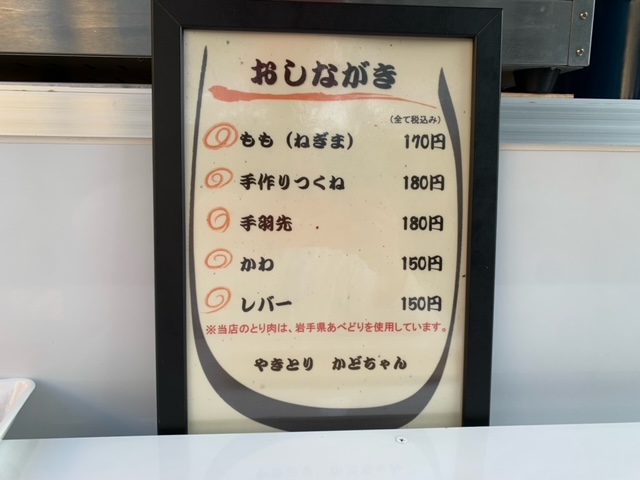 おしながき
(全て税込み)
もも（ねぎま） 170円
手作りつくね 180円
手羽先 180円
かわ 150円
レバー 150円
※当店のとり肉は、岩手県あべどりを使用しています。
やきとり かどちゃん